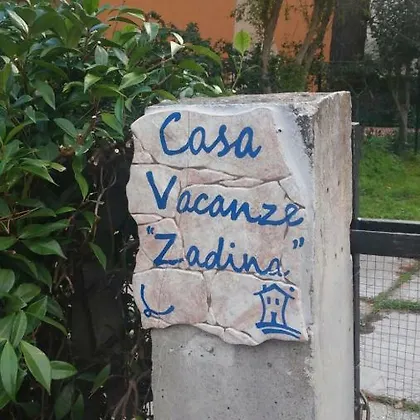 Casa
Vacanze
"Zadina"